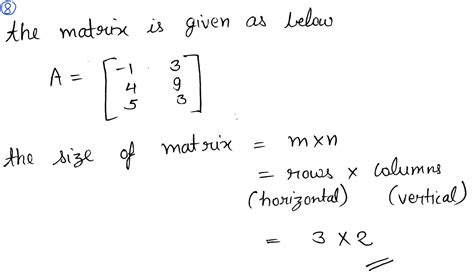 8
the matrix is given as below
A = [ -1 3
4 9
5 3 ]
the size of matrix = m×n
= rows × columns
(horizontal) (vertical)
= 3 × 2